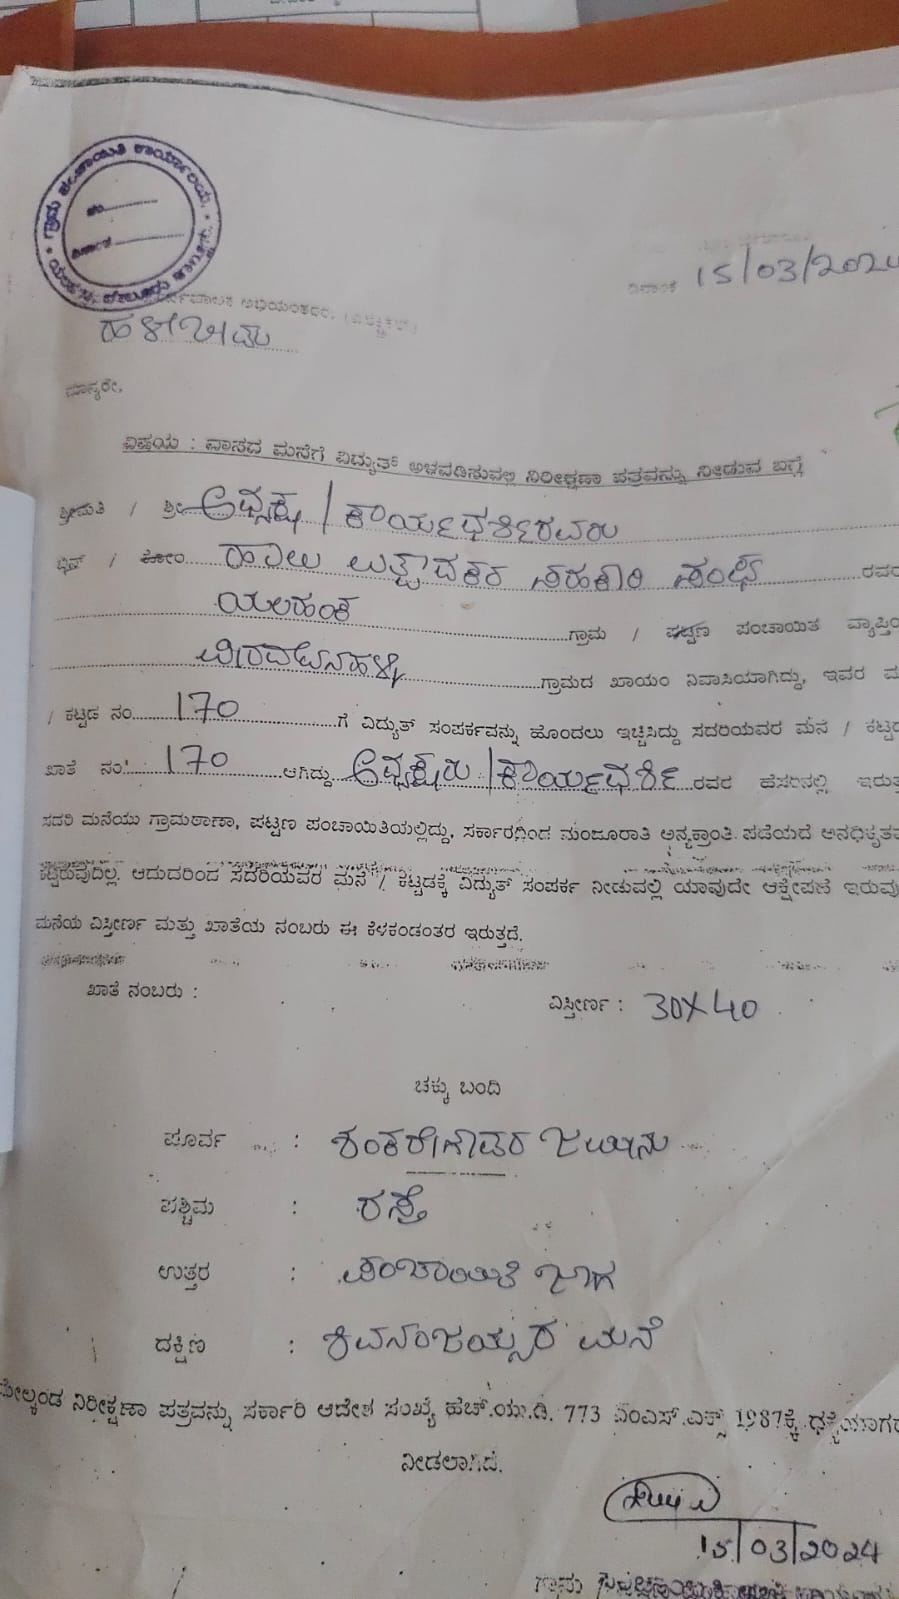 ಗ್ರಾಮ ಪಂಚಾಯಿತಿ ಕಾರ್ಯಾಲಯ
ದಿನಾಂಕ 15/03/202
ಅಭಿಯಂತರರು, (ವಿದ್ಯುತ್)
ಹಳೇಬೀಡು
ಮಾನ್ಯರೇ,
ವಿಷಯ : ವಾಸದ ಮನೆಗೆ ವಿದ್ಯುತ್ ಅಳವಡಿಸುವಲ್ಲಿ ನಿರೀಕ್ಷಣಾ ಪತ್ರವನ್ನು ನೀಡುವ ಬಗ್ಗೆ
ಶ್ರೀಮತಿ / ಶ್ರೀ ಅಧ್ಯಕ್ಷ / ಕಾರ್ಯಧರ್ಶಿರವರು
ಬಿನ್ / ಕೋಂ ಹಾಲು ಉತ್ಪಾದಕರ ಸಹಕಾರಿ ಸಂಘ ರವರ
ಯಲಹಂಕ ಗ್ರಾಮ / ಪಟ್ಟಣ ಪಂಚಾಯಿತ ವ್ಯಾಪ್ತಿಯ
ಗ್ರಾಮದ ಖಾಯಂ ನಿವಾಸಿಯಾಗಿದ್ದು, ಇವರ ಮ
/ ಕಟ್ಟಡ ನಂ. 170 ಗೆ ವಿದ್ಯುತ್ ಸಂಪರ್ಕವನ್ನು ಹೊಂದಲು ಇಚ್ಚಿಸಿದ್ದು ಸದರಿಯವರ ಮನೆ / ಕಟ್ಟಡ
ಖಾತೆ ನಂ. 170 ಆಗಿದ್ದು ಅಧ್ಯಕ್ಷರು / ಕಾರ್ಯಧರ್ಶಿ ರವರ ಹೆಸರಿನಲ್ಲಿ ಇರುತ್ತ
ಸದರಿ ಮನೆಯು ಗ್ರಾಮಠಾಣಾ, ಪಟ್ಟಣ ಪಂಚಾಯಿತಿಯಲ್ಲಿದ್ದು, ಸರ್ಕಾರದಿಂದ ಮಂಜೂರಾತಿ ಅನ್ಯಕ್ರಾಂತಿ ಪಡೆಯದೆ ಅನಧಿಕೃತವ
ಕಟ್ಟಿರುವುದಿಲ್ಲ. ಆದುದರಿಂದ ಸದರಿಯವರ ಮನೆ / ಕಟ್ಟಡಕ್ಕೆ ವಿದ್ಯುತ್ ಸಂಪರ್ಕ ನೀಡುವಲ್ಲಿ ಯಾವುದೇ ಆಕ್ಷೇಪಣೆ ಇರುವು
ಮನೆಯ ವಿಸ್ತೀರ್ಣ ಮತ್ತು ಖಾತೆಯ ನಂಬರು ಈ ಕೆಳಕಂಡಂತರ ಇರುತ್ತದೆ.
ಖಾತೆ ನಂಬರು : ವಿಸ್ತೀರ್ಣ : 30X40
ಚಕ್ಕು ಬಂದಿ
ಪೂರ್ವ : ಶಂಕರೇಗೌಡರ ಜಮೀನು
ಪಶ್ಚಿಮ : ರಸ್ತೆ
ಉತ್ತರ : ಪಂಚಾಯಿತಿ ಜಾಗ
ದಕ್ಷಿಣ : ಶಿವನಂಜಯ್ಯನ ಮನೆ
ಮೇಲ್ಕಂಡ ನಿರೀಕ್ಷಣಾ ಪತ್ರವನ್ನು ಸರ್ಕಾರಿ ಆದೇಶ ಸಂಖ್ಯೆ ಹೆಚ್.ಯು.ಡಿ. 773 ಎಂಎಸ್.ಎಕ್ಸ್ 1987ಕ್ಕೆ ಧಕ್ಕೆಯಾಗದ
ನೀಡಲಾಗಿದೆ.
15/03/2024